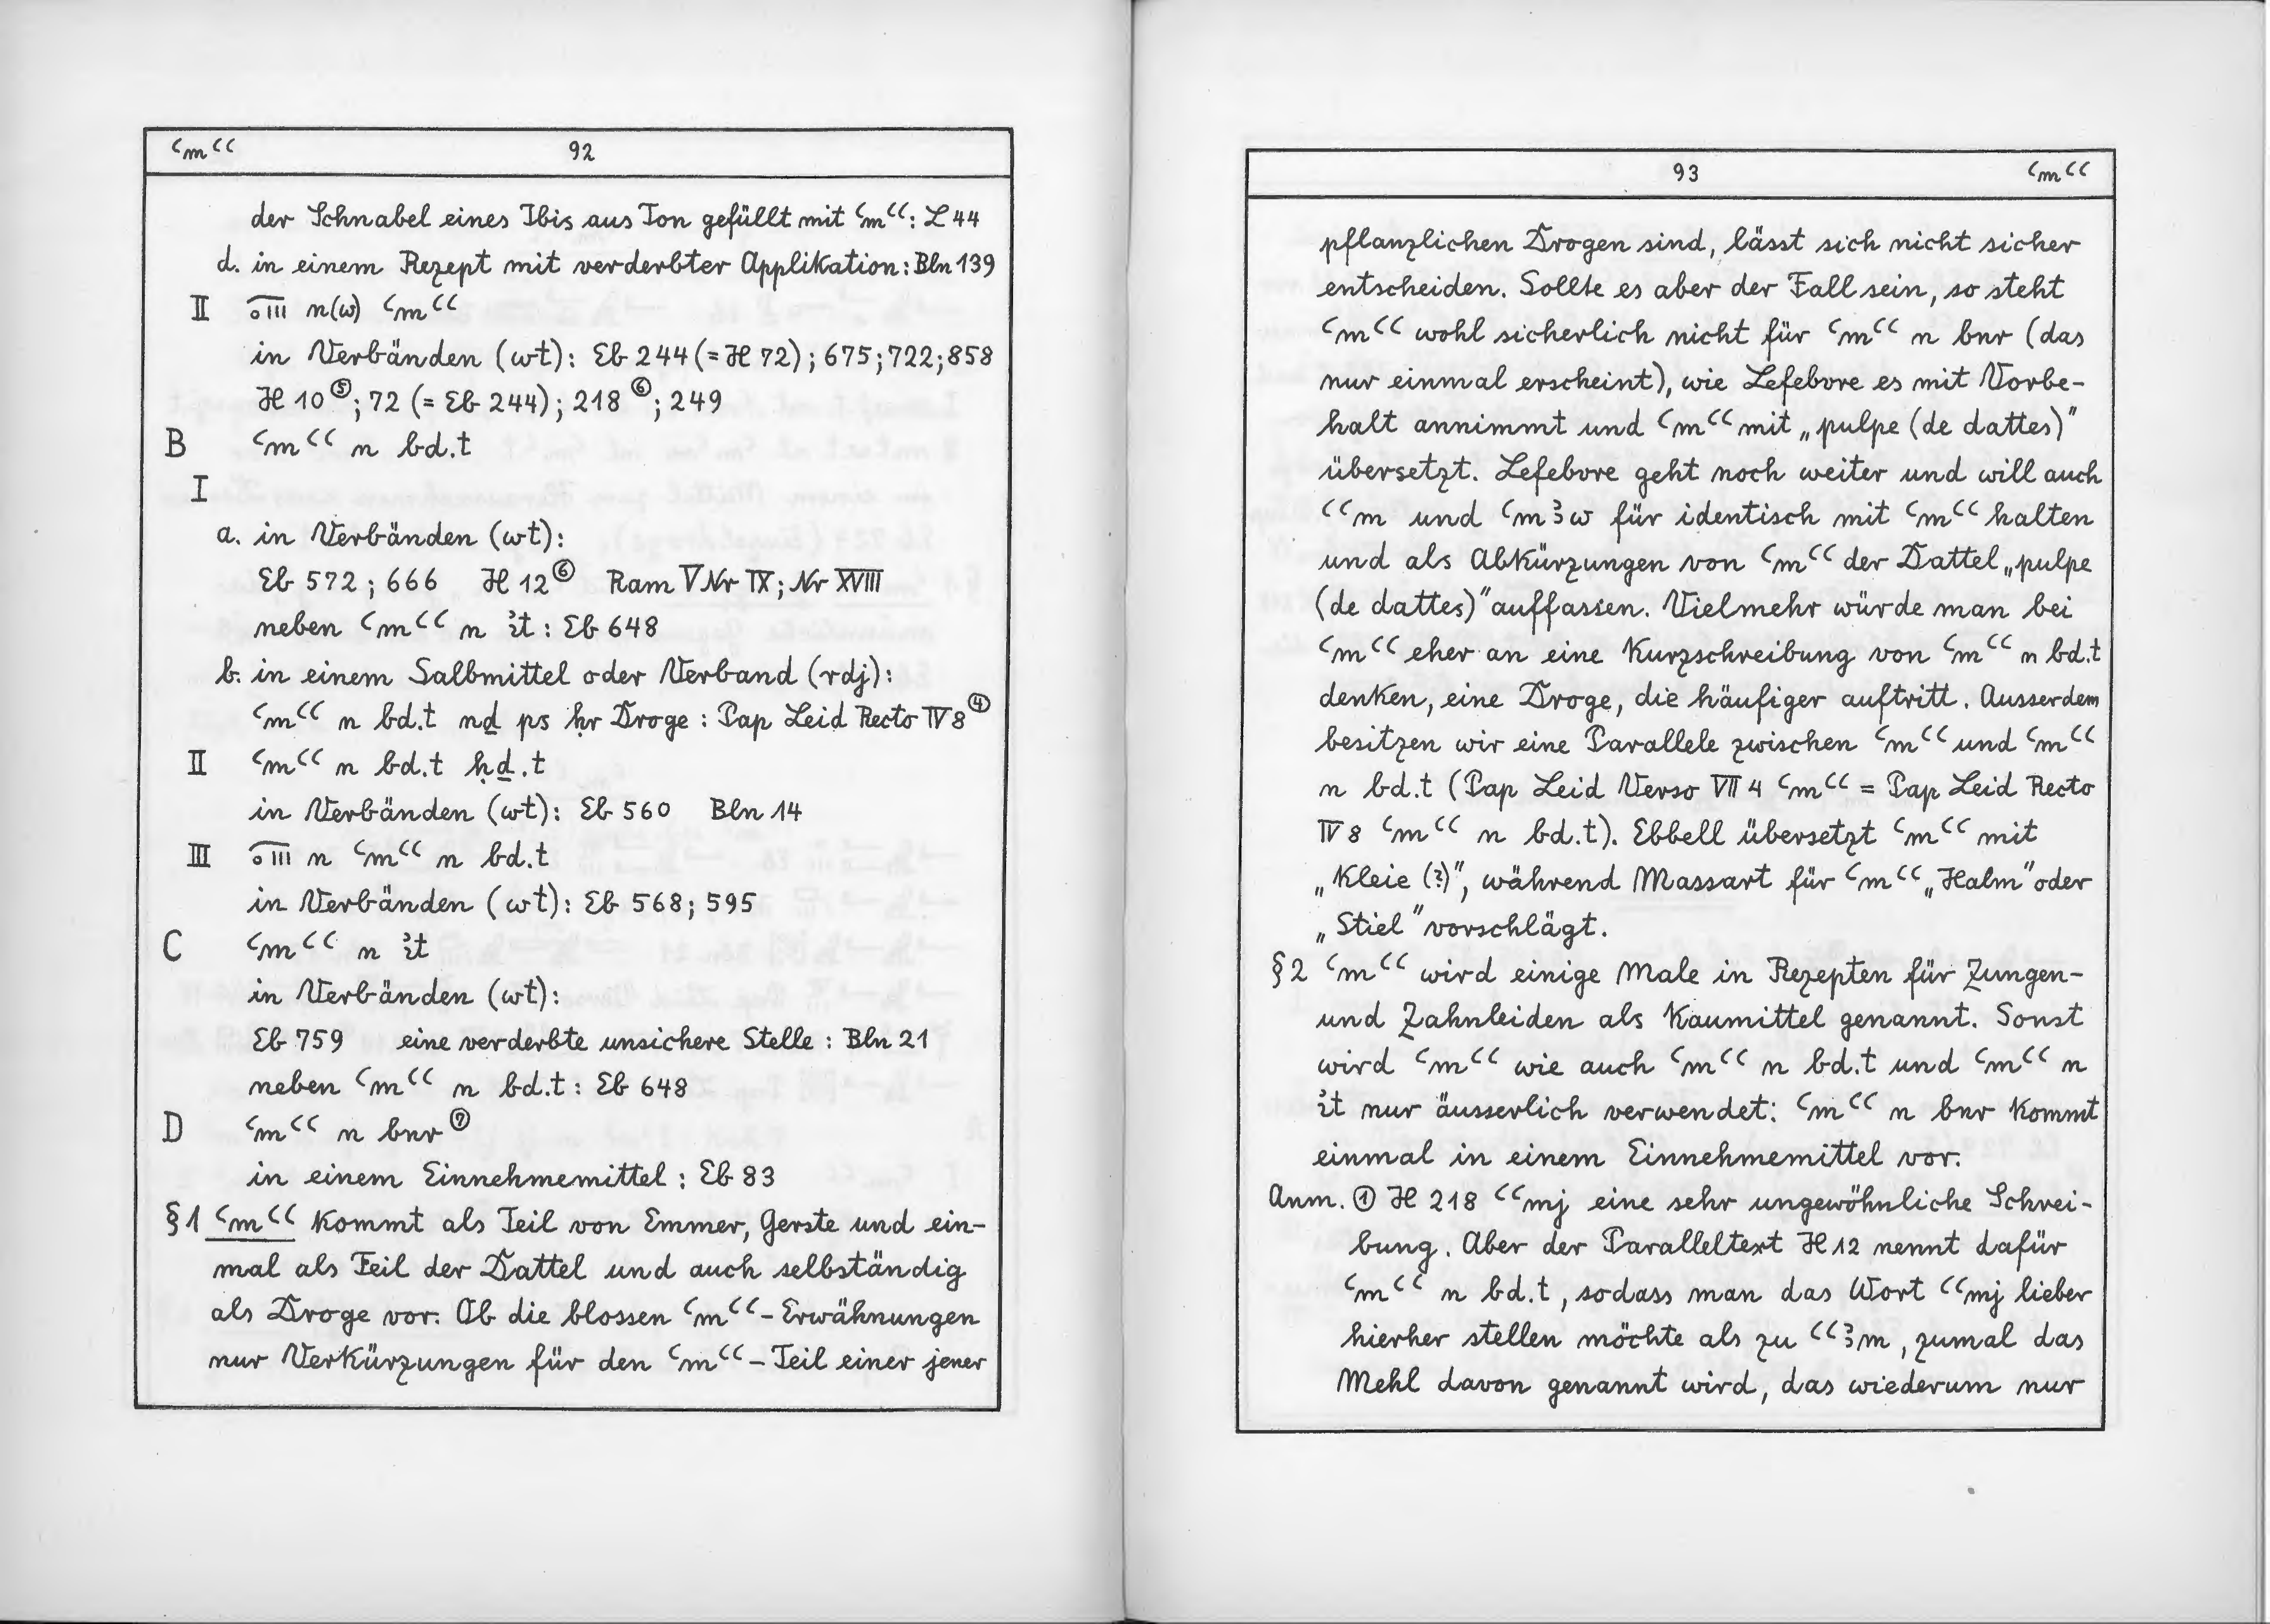 ꜥmꜥꜥ 92
der Schnabel eines Ibis aus Ton gefüllt mit ꜥmꜥꜥ: L 44
d. in einem Rezept mit verderbter Applikation: Bln 139
II n(w) ꜥmꜥꜥ
in Verbänden (wt): Eb 244 (= H 72); 675; 722; 858
H 10 ⑤; 72 (= Eb 244); 218 ⑥; 249
B ꜥmꜥꜥ n bd.t
I
a. in Verbänden (wt):
Eb 572; 666 H 12 ⑥ Ram V Nr IX; Nr XVIII
neben ꜥmꜥꜥ n i͗t: Eb 648
b. in einem Salbmittel oder Verband (rdj):
ꜥmꜥꜥ n bd.t nḏ ps ḥr Droge: Pap Leid Recto IV 8 ④
II ꜥmꜥꜥ n bd.t ḥḏ.t
in Verbänden (wt): Eb 560 Bln 14
III n ꜥmꜥꜥ n bd.t
in Verbänden (wt): Eb 568; 595
C ꜥmꜥꜥ n i͗t
in Verbänden (wt):
Eb 759 eine verderbte unsichere Stelle: Bln 21
neben ꜥmꜥꜥ n bd.t: Eb 648
D ꜥmꜥꜥ n bnr ⑦
in einem Einnehmemittel: Eb 83
§ 1 ꜥmꜥꜥ kommt als Teil von Emmer, Gerste und ein-
mal als Teil der Dattel und auch selbständig
als Droge vor. Ob die blossen ꜥmꜥꜥ-Erwähnungen
nur Verkürzungen für den ꜥmꜥꜥ-Teil einer jener
93 ꜥmꜥꜥ
pflanzlichen Drogen sind, lässt sich nicht sicher
entscheiden. Sollte es aber der Fall sein, so steht
ꜥmꜥꜥ wohl sicherlich nicht für ꜥmꜥꜥ n bnr (das
nur einmal erscheint), wie Lefebvre es mit Vorbe-
halt annimmt und ꜥmꜥꜥ mit „pulpe (de dattes)"
übersetzt. Lefebvre geht noch weiter und will auch
ꜥꜥm und ꜥmꜣw für identisch mit ꜥmꜥꜥ halten
und als Abkürzungen von ꜥmꜥꜥ der Dattel „pulpe
(de dattes)" auffassen. Vielmehr würde man bei
ꜥmꜥꜥ eher an eine Kurzschreibung von ꜥmꜥꜥ n bd.t
denken, eine Droge, die häufiger auftritt. Ausserdem
besitzen wir eine Parallele zwischen ꜥmꜥꜥ und ꜥmꜥꜥ
n bd.t (Pap Leid Verso VII 4 ꜥmꜥꜥ = Pap Leid Recto
IV 8 ꜥmꜥꜥ n bd.t). Ebbell übersetzt ꜥmꜥꜥ mit
„Kleie (?)", während Massart für ꜥmꜥꜥ „Halm" oder
„Stiel" vorschlägt.
§ 2 ꜥmꜥꜥ wird einige Male in Rezepten für Zungen-
und Zahnleiden als Kaumittel genannt. Sonst
wird ꜥmꜥꜥ wie auch ꜥmꜥꜥ n bd.t und ꜥmꜥꜥ n
i͗t nur äusserlich verwendet: ꜥmꜥꜥ n bnr kommt
einmal in einem Einnehmemittel vor.
Anm. ① H 218 ꜥꜥmj eine sehr ungewöhnliche Schrei-
bung. Aber der Paralleltext H 12 nennt dafür
ꜥmꜥꜥ n bd.t, sodass man das Wort ꜥꜥmj lieber
hierher stellen möchte als zu ꜥꜥꜣm, zumal das
Mehl davon genannt wird, das wiederum nur